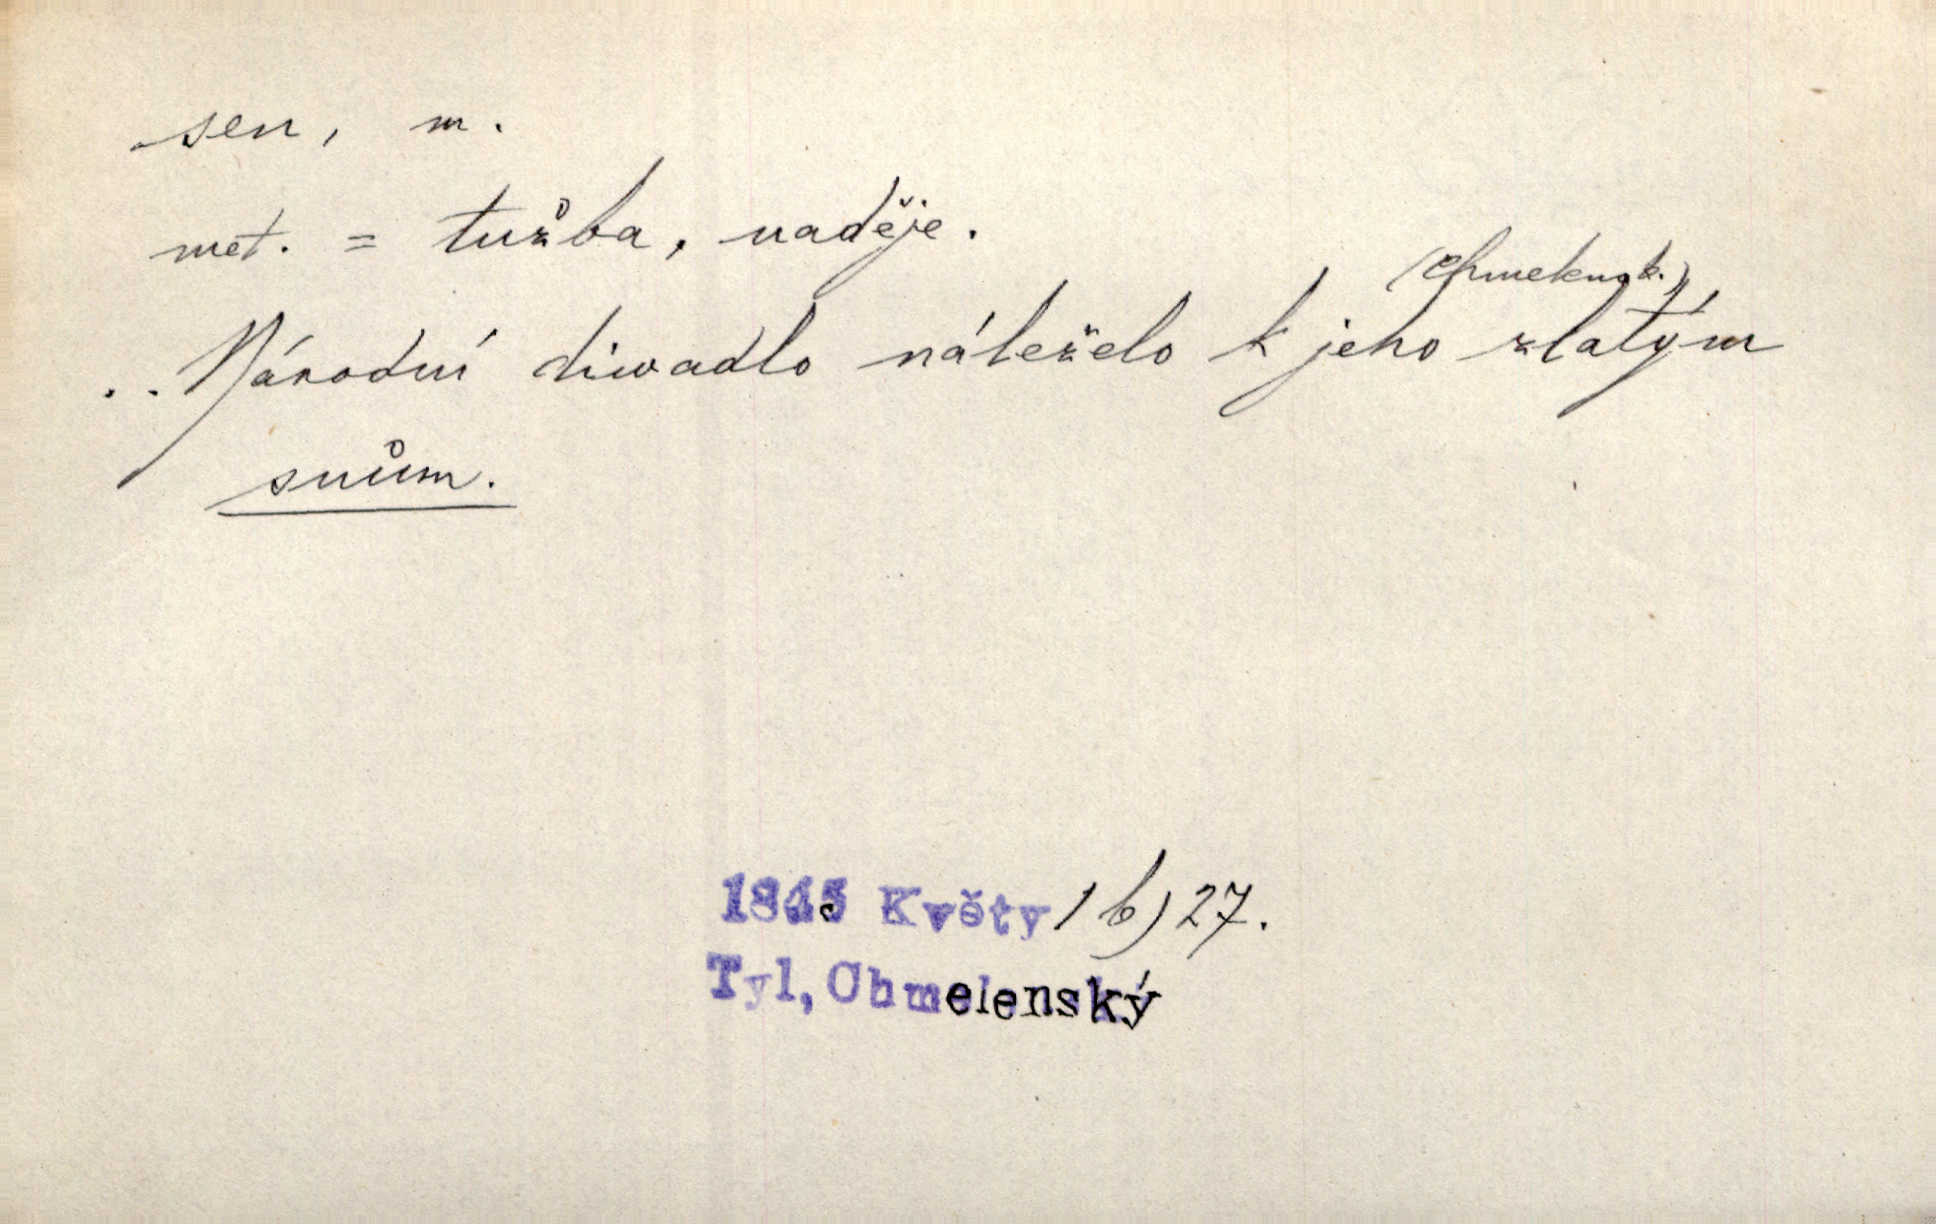 sen, m.
met. = tužba, naděje.
(Chmelensk.)
.. Národní diwadlo náleželo k jeho zlatým
snům.
Květy 1 b) 27.
Tyl, Chmelenský